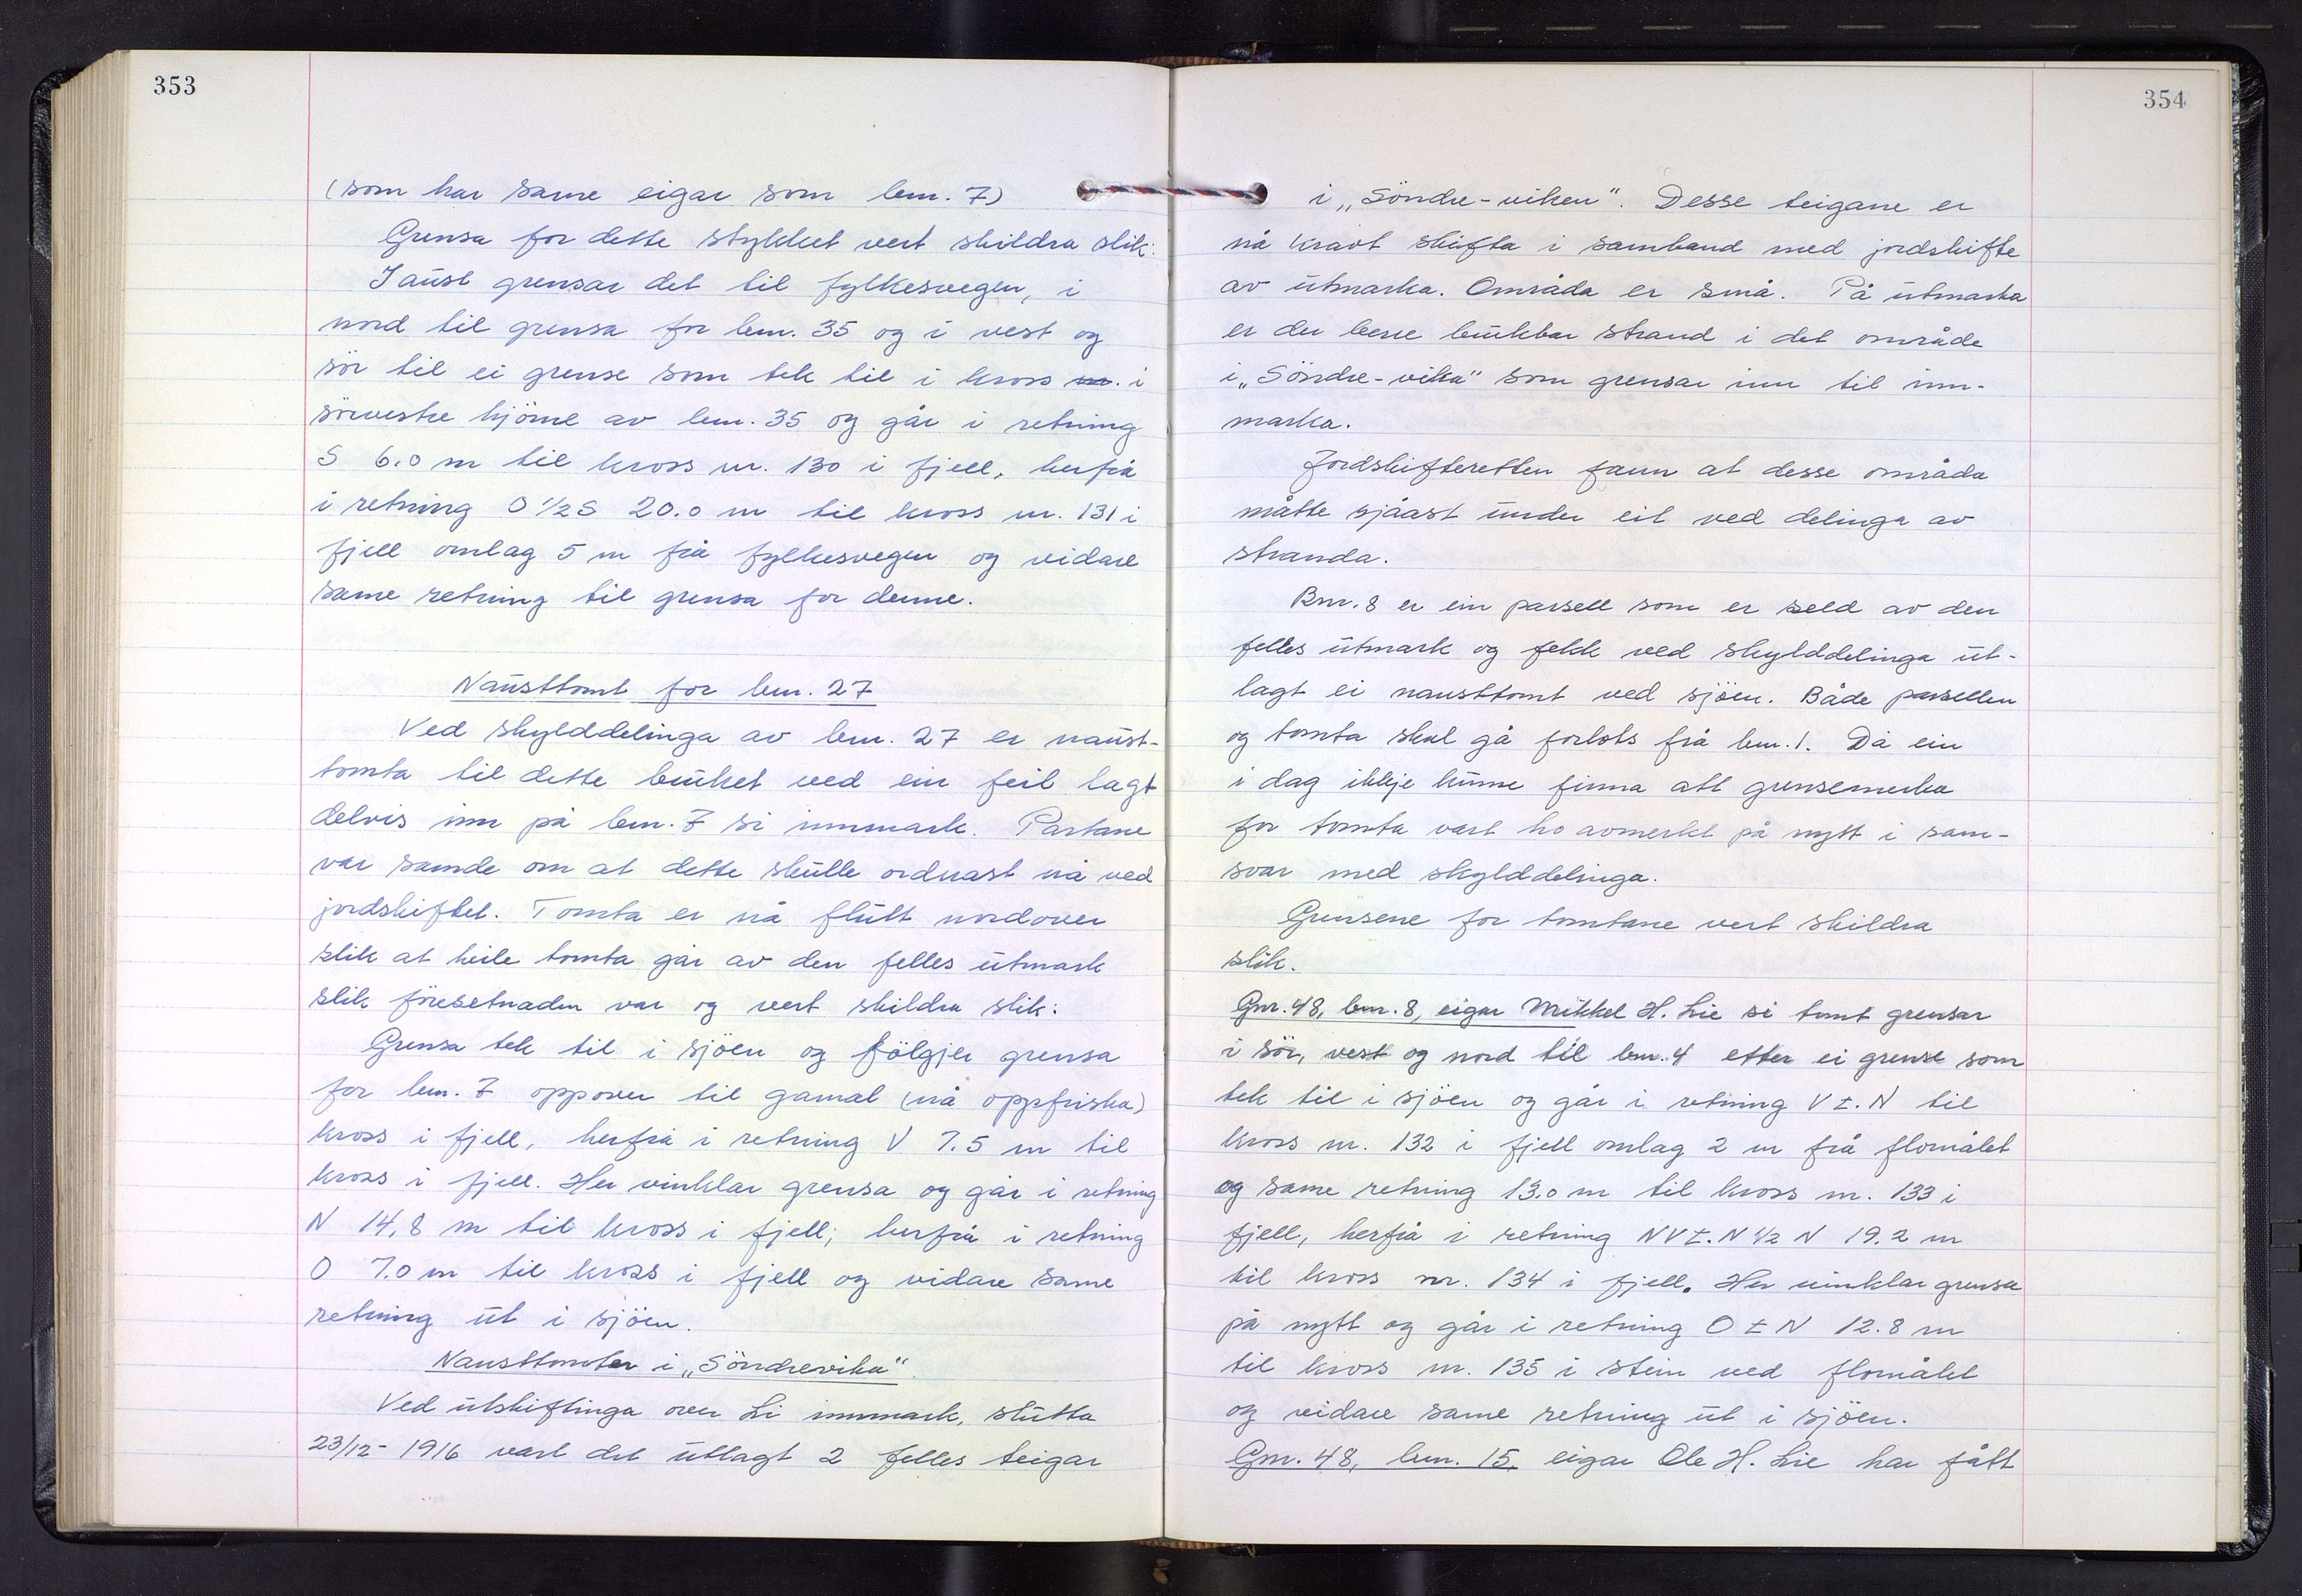 353
(som har same eigar som bnr. 7)
Grensa for dette stykket vert skildra slik:
I aust grensar det til fylkesvegen, i
nord til grensa for bnr. 35 og i vest og
sör til ei grense som tek til i kross nr. i
sörvestre hjörne av bnr. 35 og går i retning
S 6.0 m til kross nr. 130 i fjell, herfrå
i retning O ½ S 20.0 m til kross nr. 131 i
fjell omlag 5 m frå fylkesvegen og vidare
same retning til grensa for denne.
Nausttomt for bnr. 27
Ved skylddelinga av bnr. 27 er naust-
tomta til dette bruket ved ein feil lagt
delvis inn på bnr. 7 si innmark. Partane
var samde om at dette skulle ordnast nå ved
jordskiftet. Tomta er nå flutt nordover
slik at heile tomta går av den felles utmark
slik föresetnaden var og vert skildra slik:
Grensa tek til i sjöen og fölgjer grensa
for bnr. 7 oppover til gamal (nå oppfriska)
kross i fjell, herfrå i retning V 7.5 m til
kross i fjell. Her vinklar grensa og går i retning
N 14,8 m til kross i fjell; herfrå i retning
O 7.0 m til kross i fjell og vidare same
retning ut i sjöen.
Nausttomter i „Söndrevika".
Ved utskiftinga over Li innmark, slutta
23/12- 1916 vart det utlagt 2 felles teigar
354
i „Söndre-viken". Desse teigane er
nå kravt skifta i samband med jordskifte
av utmarka. Områda er små. På utmarka
er der berre brukbar strand i det område
i „Söndre-vika" som grensar inn til inn-
marka.
Jordskifteretten fann at desse områda
måtte sjåast under eit ved delinga av
stranda.
Bnr. 8 er ein parsell som er seld av den
felles utmark og fekk ved skylddelinga ut-
lagt ei nausttomt ved sjöen. Både parsellen
og tomta skal gå forlots frå bnr. 1. Då ein
i dag ikkje kunne finna att grensemerka
for tomta vart ho avmerkt på nytt i sam-
svar med skylddelinga.
Grensene for tomtane vert skildra
slik.
Gnr. 48, bnr. 8, eigar Mikkel H. Lie si tomt grensar
i sör, vest og nord til bnr. 4 etter ei grense som
tek til i sjöen og går i retning V t. N til
kross nr. 132 i fjell omlag 2 m frå flomålet
og same retning 13.0 m til kross nr. 133 i
fjell, herfrå i retning NV t. N ½ N 19.2 m
til kross nr. 134 i fjell. Her vinklar grensa
på nytt og går i retning O t N 12.8 m
til kross nr. 135 i stein ved flomålet
og vidare same retning ut i sjöen.
Gnr. 48, bnr. 15, eigar Ole H. Lie har fått